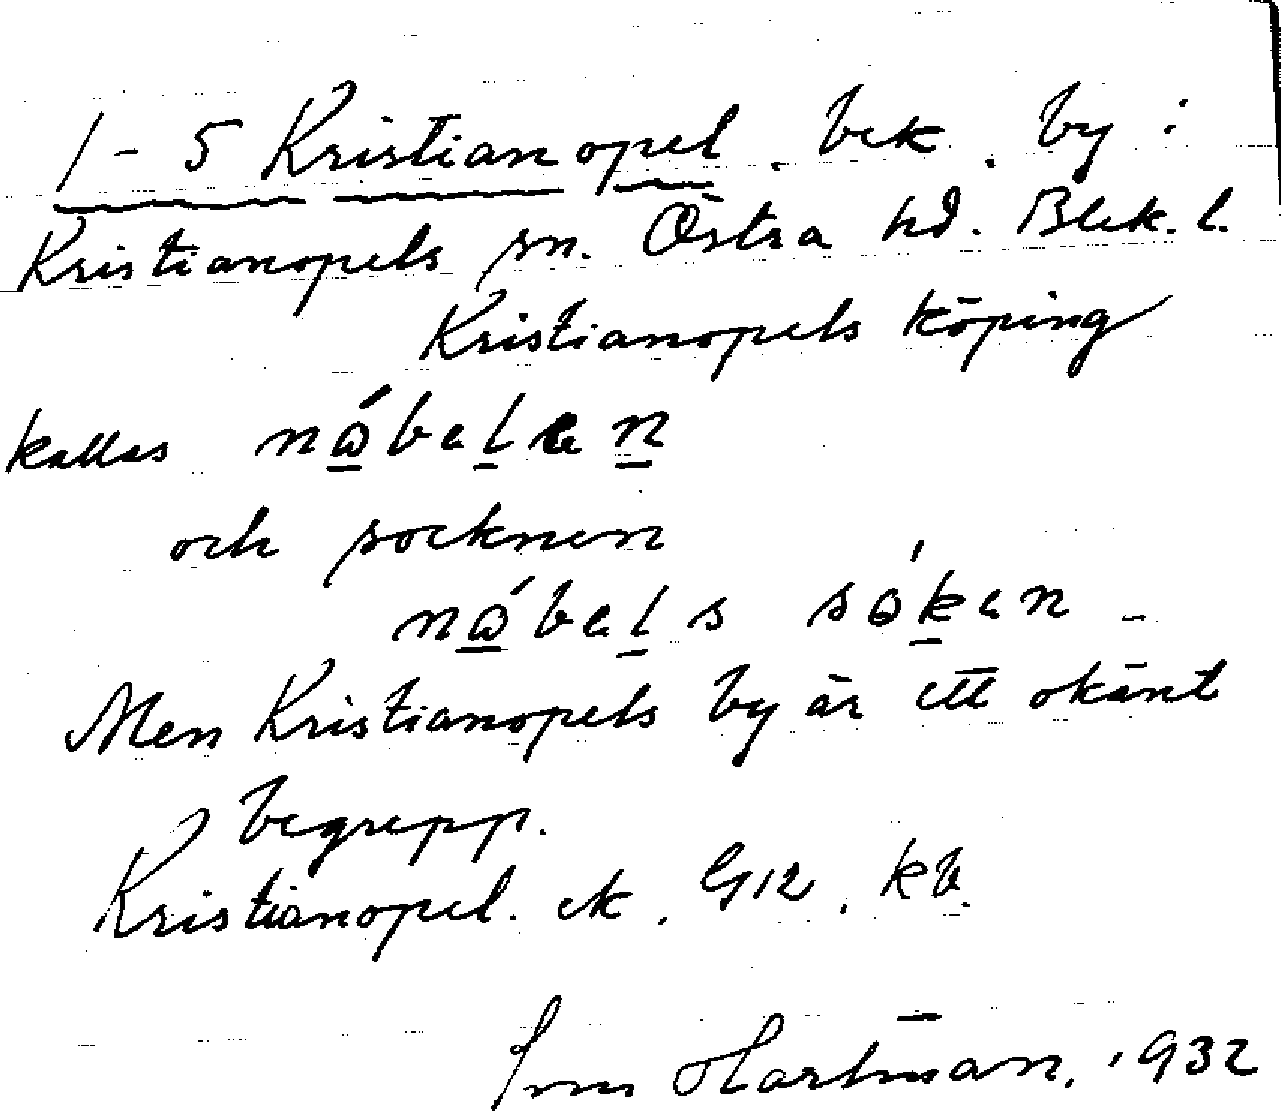 1-5 Kristianopel. bek. by i
Kristianopels sn. Östra hd. Blek. l.
Kristianopels köping
kallas nábelen
och socknen
nábels sóken -
Men Kristianopels by är ett okänt
begrepp.
Kristianopel. ek. G12. kb.
Hartman. 1932